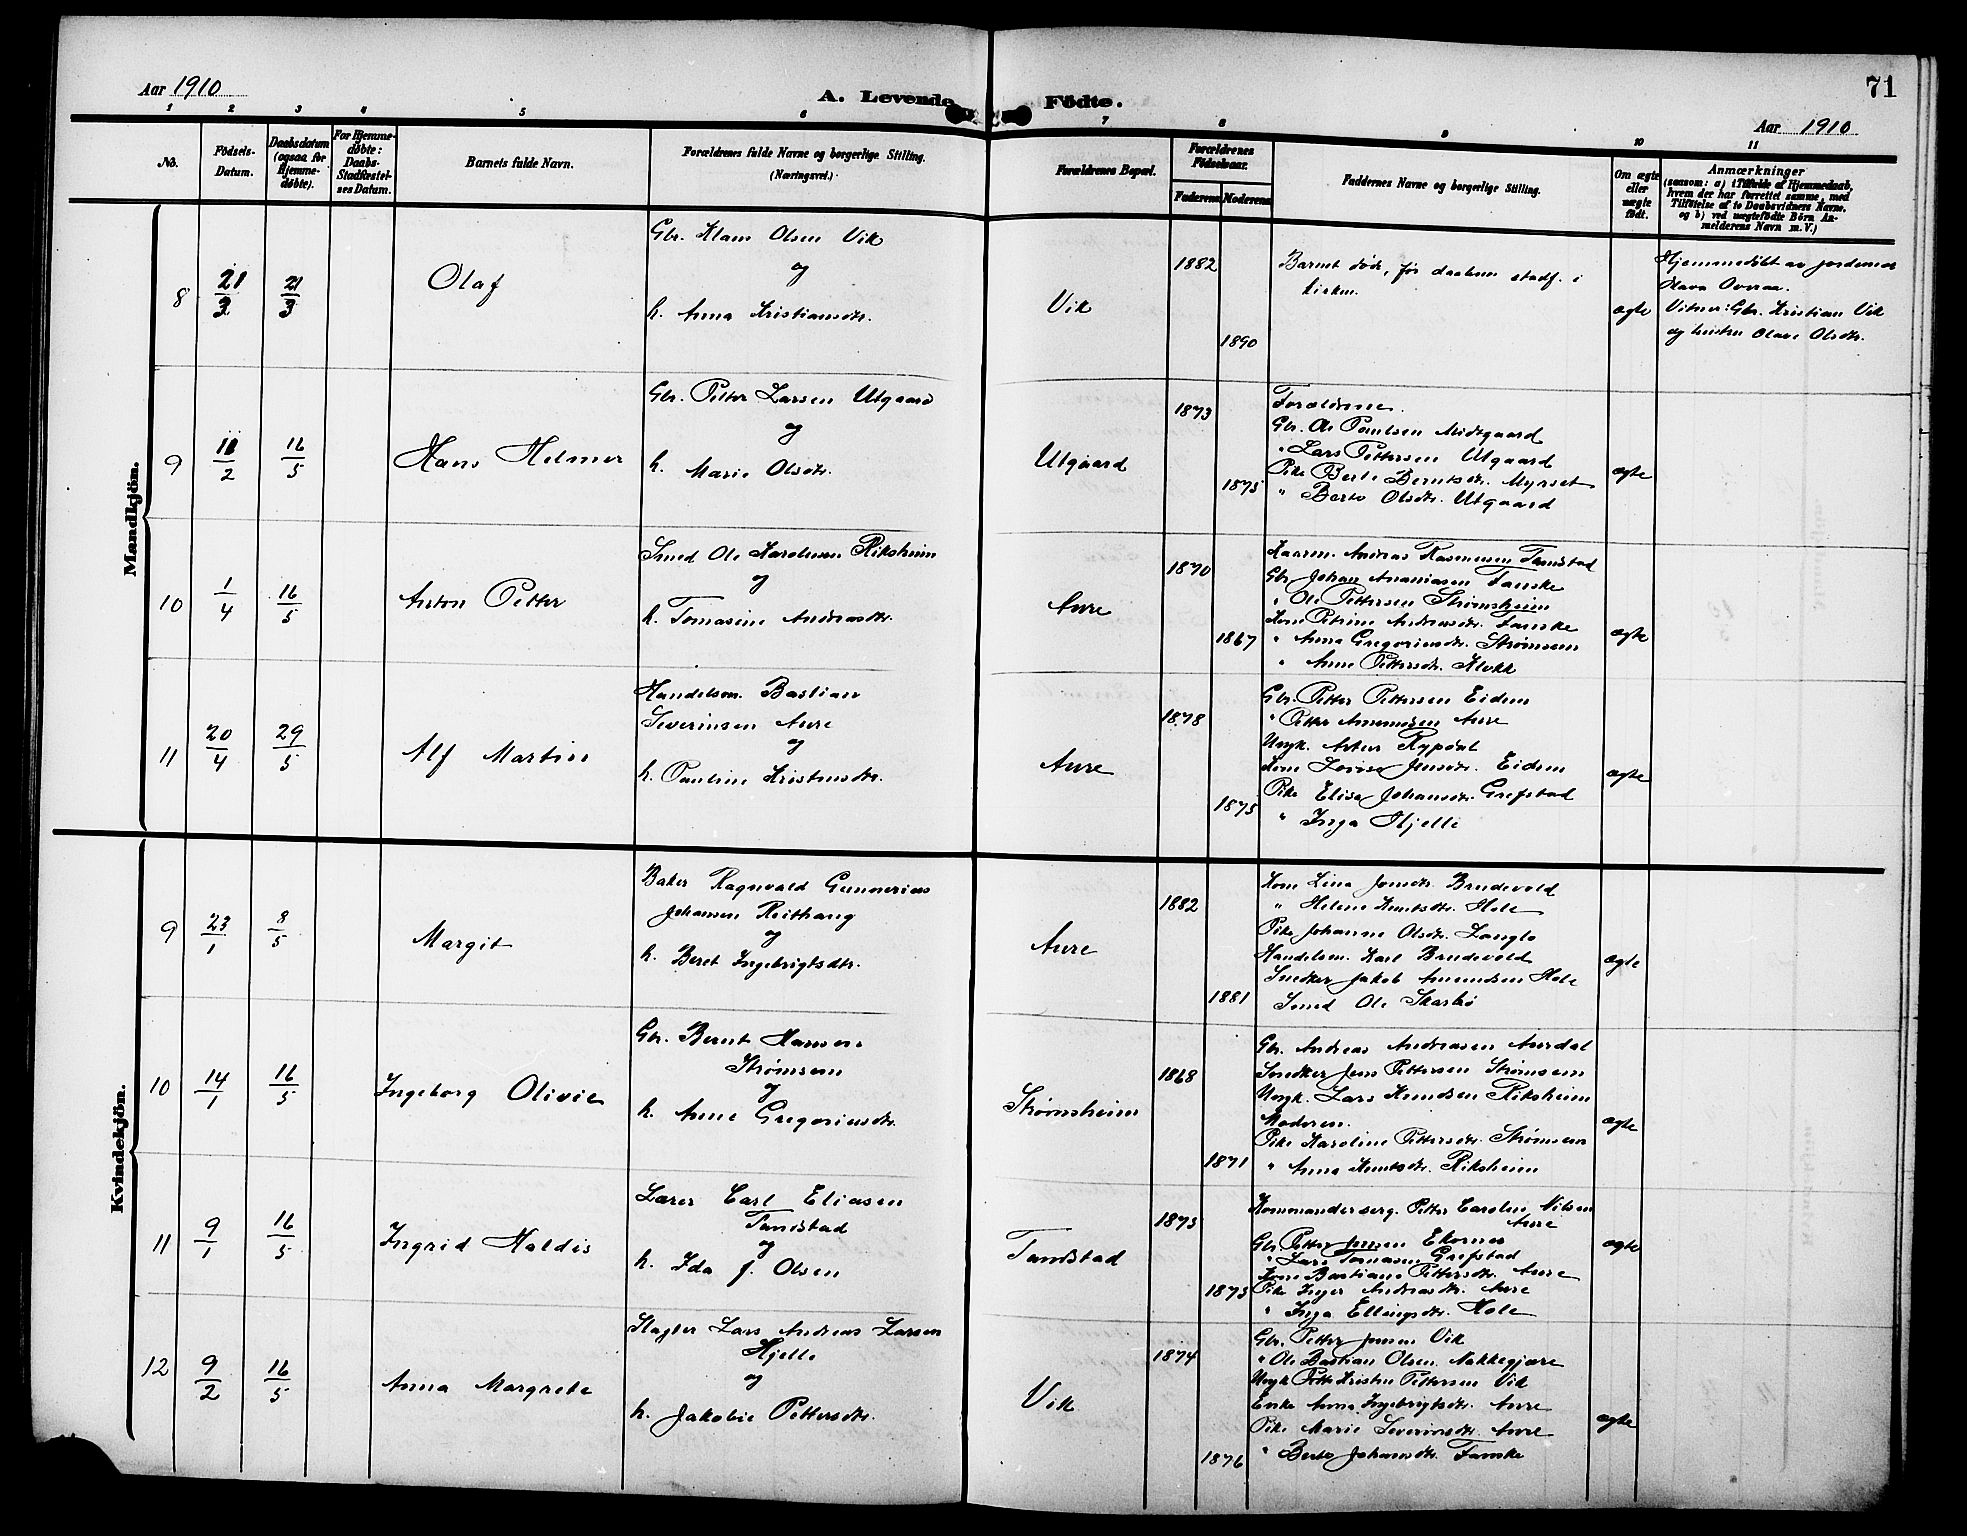 71
Aar 1910
A. Levende Födte.
Aar 1910
1 2 3 4 5 6 7 8 9 10 11
No.
Födsels-Datum.
Daabsdatum (ogsaa for Hjemme-døbte).
For Hjemme-døbte: Daabs-Stadfæstel-ses Datum.
Barnets fulde Navn.
Forældrenes fulde Navne og borgerlige Stilling.
(Næringsvei.)
Forældrenes Bopæl.
Forældrenes Födselsaar.
Faderens Moderens
Faddernes Navne og borgerlige Stilling.
Om ægte eller uægte født.
Anmærkninger
(saasom: a) i Tilfælde af Hjemmedaab,
hvem der har forrettet samme, med
Tilföielse af to Daabsvidners Navne,
og b) ved uægtefödte Börn An-
melderens Navn m. V.)
Mandkjön.
8
21/3
21/3
Olaf
Gbr. Klaus Olsen Vik
og
h. Anna Kristiansdtr.
Vik
1882
1890
Barnet døde, før daaben stadf. i
kirken.
ægte
Hjemmedøbt av jordemor
Vitner: Gbr. Kristian Vik
og hustru Olave Olsdtr.
9
11/2
16/5
Hans Helmer
Gbr. Petter Larsen Utgaard
og
h. Marie Olsdtr.
Utgaard
1873
1875
Forældrene.
Gbr. Ole Paulsen Midtgaard
" Lars Pettersen Utgaard
Pike Berte Berntsdtr. Myrset
" Berte Olsdtr. Utgaard
ægte
10
1/4
16/5
Anton Petter
Smed Ole Karolusen Riksheim
og
h. Tomasine Andreasdtr.
Aure
1870
1867
Kaarm. Andreas Rasmussen Tandstad
Gbr. Johan Ananiasen Fauske
" Ole Pettersen Strømsheim
Kone Petrine Andreasdtr. Fauske
" Anna Gregoriusdtr. Strømsem
" Anne Pettersdtr. Klokk
ægte
11
20/4
29/5
Alf Martin
Handelsm. Bastian
Severinsen Aure
og
h. Pauline Kristensdtr.
Aure
1878
1875
Gbr. Petter Pettersen Eidem
" Petter Amundsen Aure
Ungk. Artur Rypdal
Kone Lovise Jensdtr. Eidem
Pike Elise Johansdtr. Grefstad
" Inga Hjelle
ægte
Kvindekjön.
9
23/1
8/5
Margit
Baker Ragnvald Gunnerius
Johansen Reithaug
og
h. Beret Ingebrigtsdtr.
Aure
1882
1881
Kone Lina Jonsdtr. Brudevold
" Helene Knutsdtr. Hole
Pike Johanne Olsdtr. Langlo
Handelsm. Karl Brudevold
Snedker Jakob Amundsen Hole
Smed Ole Skarbø
ægte
10
14/1
16/5
Ingeborg Olivie
Gbr. Bernt Hansen
Strømsem
og
h. Anne Gregoriusdtr.
Strømsheim
1868
1871
Gbr. Andreas Andreasen Aurdal
Snedker Jens Pettersen Strømsem
Ungk. Lars Knudsen Riksheim
Moderen.
Pike Karoline Pettersdtr. Strømsem
" Anna Knutsdtr. Riksheim
ægte
11
9/1
16/5
Ingrid Haldis
Lærer Carl Eliasen
Tandstad
og
h. Ida J. Olsen
Tandstad
1873
1873
Kommandersерg. Petter Carolus Nilsen
Aure
Gbr. Petter Jensen Ekornes
" Lars Tomasen Grefstad
Kone Bastiane Pettersdtr. Aure
Pike Inger Andreasdtr. Aure
" Inga Ellingsdtr. Hole
ægte
12
9/2
16/5
Anna Margrete
Slagter Lars Andreas Larsen
Hjelle
og
h. Jakobie Pettersdtr.
Vik
1874
1876
Gbr. Petter Jensen Vik
" Ole Bastian Olsen Nakkegjære
Ungk Petter Kristen Pettersen Vik
Enke Anna Ingebrigtsdtr. Aure
Pike Marie Severinsdtr. Aure
" Berte Johansdtr. Fauske
ægte